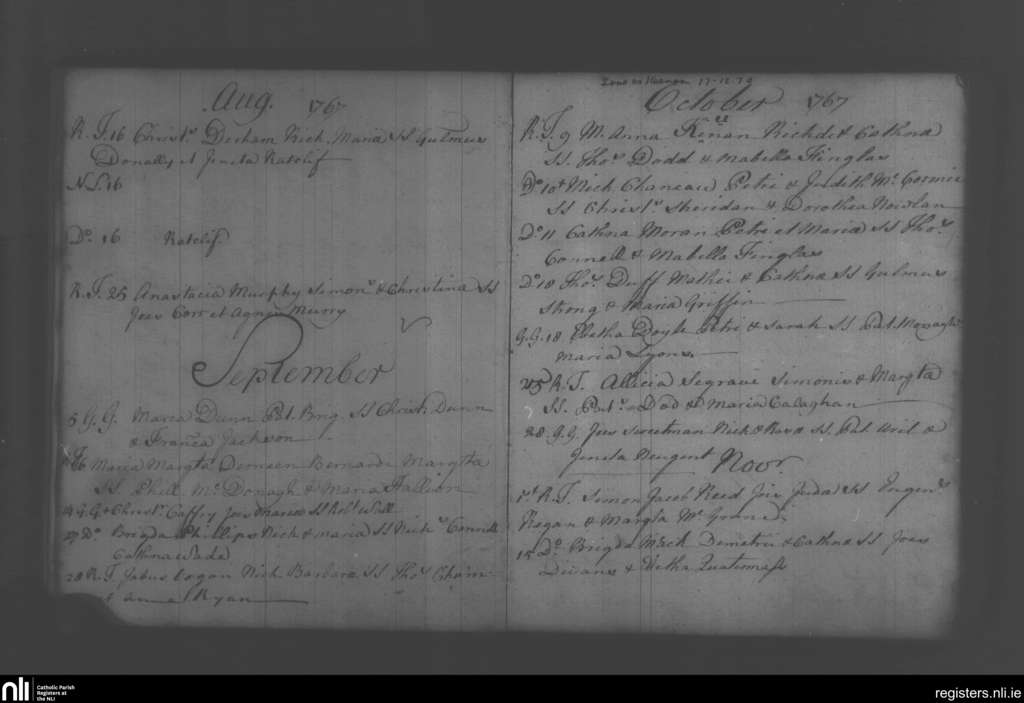 Aug. 1767
R. T. 16 Christr. Derham Rich. Maria SS Gulmus
Donally et Juneta Ratclif
N S. 16
Do. 16 Ratclif
R. T. 25 Anastacia Murphy Simons & Christina SS
Joes Corr et Agnes Murry
September
5 G. G. Maria Dunn Pat. Brig. SS Christ. Dunn
& Francs Jackson
Maria Margta Demeen Bernardi Margtta
SS Phill. Mc Donagh & Maria Fallion
G. G. Christr. Caffry Jos Maria SS Robt Wall
27 Do Brigda Phillips Rich & maria SS Rich Connell
Cathna Wade
28 R. T. Jabus Cogan Rich Barbara SS Thos
anna Ryan
17-12-79
October 1767
R. T. 9 M. Anna Keenan Richdi & Cathna
SS. Thos Dodd & Mabella Finglas
Do 10th Rich Chaneau Petri & Judith Mc Cormic
SS Christr. Sheridan & Dorothea Nowlan
Do 11 Cathna Moran Petri et Maria SS Thos
Connell & Mabella Finglas
Do 18 Thos Duff Mathei & Cathna SS Gulmus
Strong & Maria Griffin
G. G. 18 Doyle Petri & Sarah SS Pat.
Maria Lyons
25 R. T. Allicia Segrave Simonis & Margta
SS. Patt. Dod & Maria Calaghan
28 G. G. Joes Sweetman Rich & Rosa SS. Pat &
Juneta Neugent
Novr.
1st R. T. Simon Jacob Reed Jos Juda SS Eugens
Regan & Margta Mc Grane
15 Do Brigda Demetrii & Cathna SS Joes
&
nli
Catholic Parish
Registers at
the NLI
registers.nli.ie